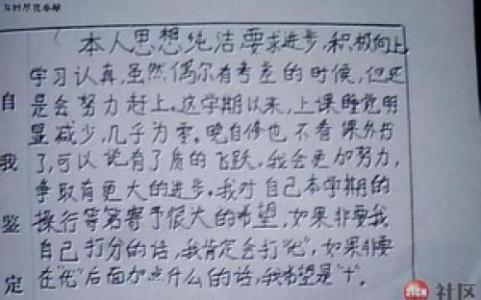 本人思想纯洁要求进步,积极向上,
学习认真,虽然偶尔有考差的时候,但还
是会努力赶上。这学期以来,上课睡觉明
显减少,几乎为零。晚自修也不看课外书
了,可以说有了质的飞跃,我会更加努力,
争取有更大的进步。我对自己本学期的
操行等第寄予很大的希望,如果非要我
自己打分的话,我肯定会打“优”,如果非要
在“优”后面加点什么的话,我希望是“+”。
自我鉴定
社区